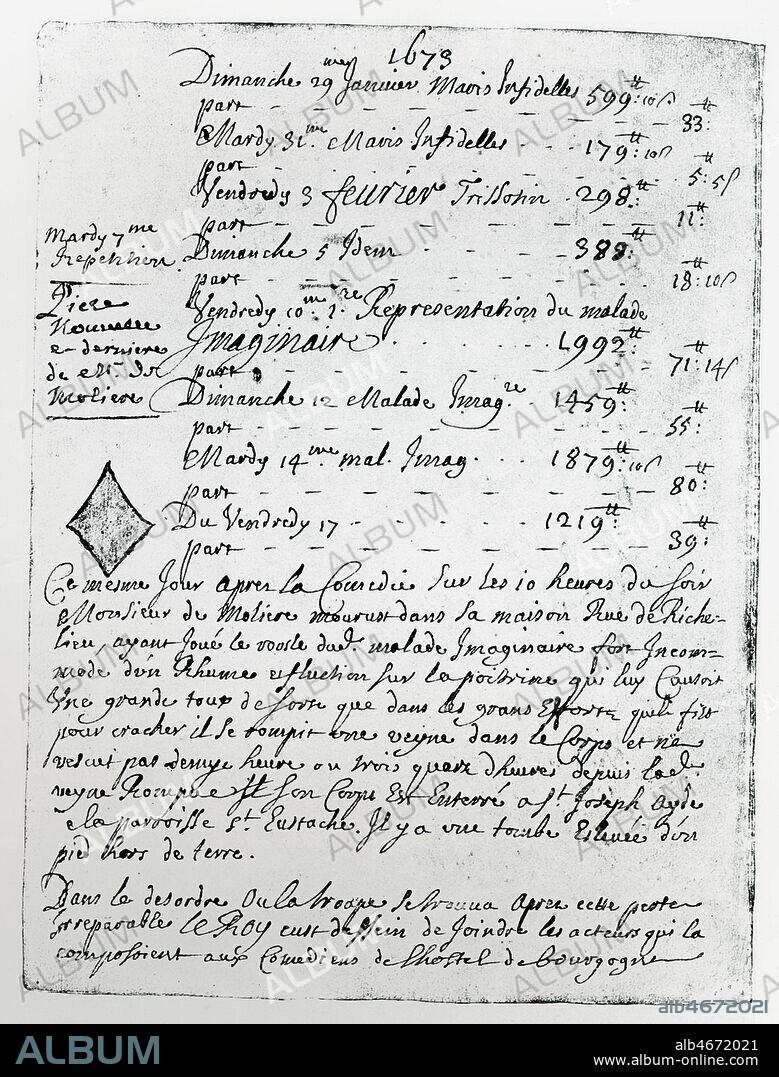 1673
Dimanche 29me Janvier Maris Infidelles 599tt:10s
part - - - - 33tt:
Mardy 31me Maris Infidelles - - 179tt:10s
part - - - - 5tt:5s
Vendredy 3 feurier Trissotin - 298tt:
part - - - - 11tt:
Mardy 7me
Repetition
Dimanche 5 Idem - - - 388tt:
part - - - - 18tt:10s
Piece
Nouuelle
e derniere
de Mr. de
Moliere
Vendredy 10me 1re Representation du malade
Imaginaire - - - 1992tt:
part - - - - 71tt:14s
Dimanche 12 Malade Imagre - 1459tt:
part - - - - 55tt:
Mardy 14me mal. Imag. - - 1879tt:10s
part - - - - 80tt:
Du Vendredy 17 - - - 1219tt:
part - - - - 39tt:
Ce mesme Jour apres la Comedie sur les 10 heures du soir
Monsieur de Moliere mourust dans sa maison Rue de Riche-
lieu, ayant Joué le roosle dud. malade Imaginaire fort Incom-
modé d'un Rhume et fluction sur la poitrine qui luy Causoit
Une grande toux de sorte que dans les grans Efforts quil fist
pour cracher il se rompit une veyne dans le Corps et ne
vescut pas demye heure ou trois quarz dheure depuis lad.
veyne Rompue Son Corps Est Enterré a St. Joseph Ayde
de la parroisse St. Eustache. Il y a une tombe Esleuée d'un
pied hors de terre.
Dans le desordre Ou la troupe se trouua apres cette perte
Irreparable le Roy eust dessein de Joindre les acteurs qui la
composoient aux Comediens de lhostel de bourgogne
ALBUM
alb4672021
ALBUM
alb4672021
www.album-online.com